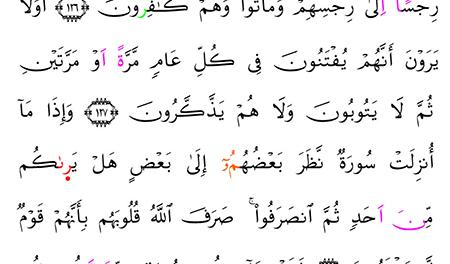 رِجْسًا اِلَىٰ رِجْسِهِمْ وَمَاتُوا۟ وَهُمْ كَـٰفِرُونَ ﴿١٢٦﴾ أَوَلَا
يَرَوْنَ أَنَّهُمْ يُفْتَنُونَ فِى كُلِّ عَامٍ مَّرَّةً اَوْ مَرَّتَيْنِ
ثُمَّ لَا يَتُوبُونَ وَلَا هُمْ يَذَّكَّرُونَ ﴿١٢٧﴾ وَإِذَا مَآ
أُنزِلَتْ سُورَةٌ نَّظَرَ بَعْضُهُمُۥٓ إِلَىٰ بَعْضٍ هَلْ يَرىٰكُم
مِّنَ اَحَدٍ ثُمَّ ٱنصَرَفُوا۟ ۚ صَرَفَ ٱللَّهُ قُلُوبَهُم بِأَنَّهُمْ قَوْمٌ